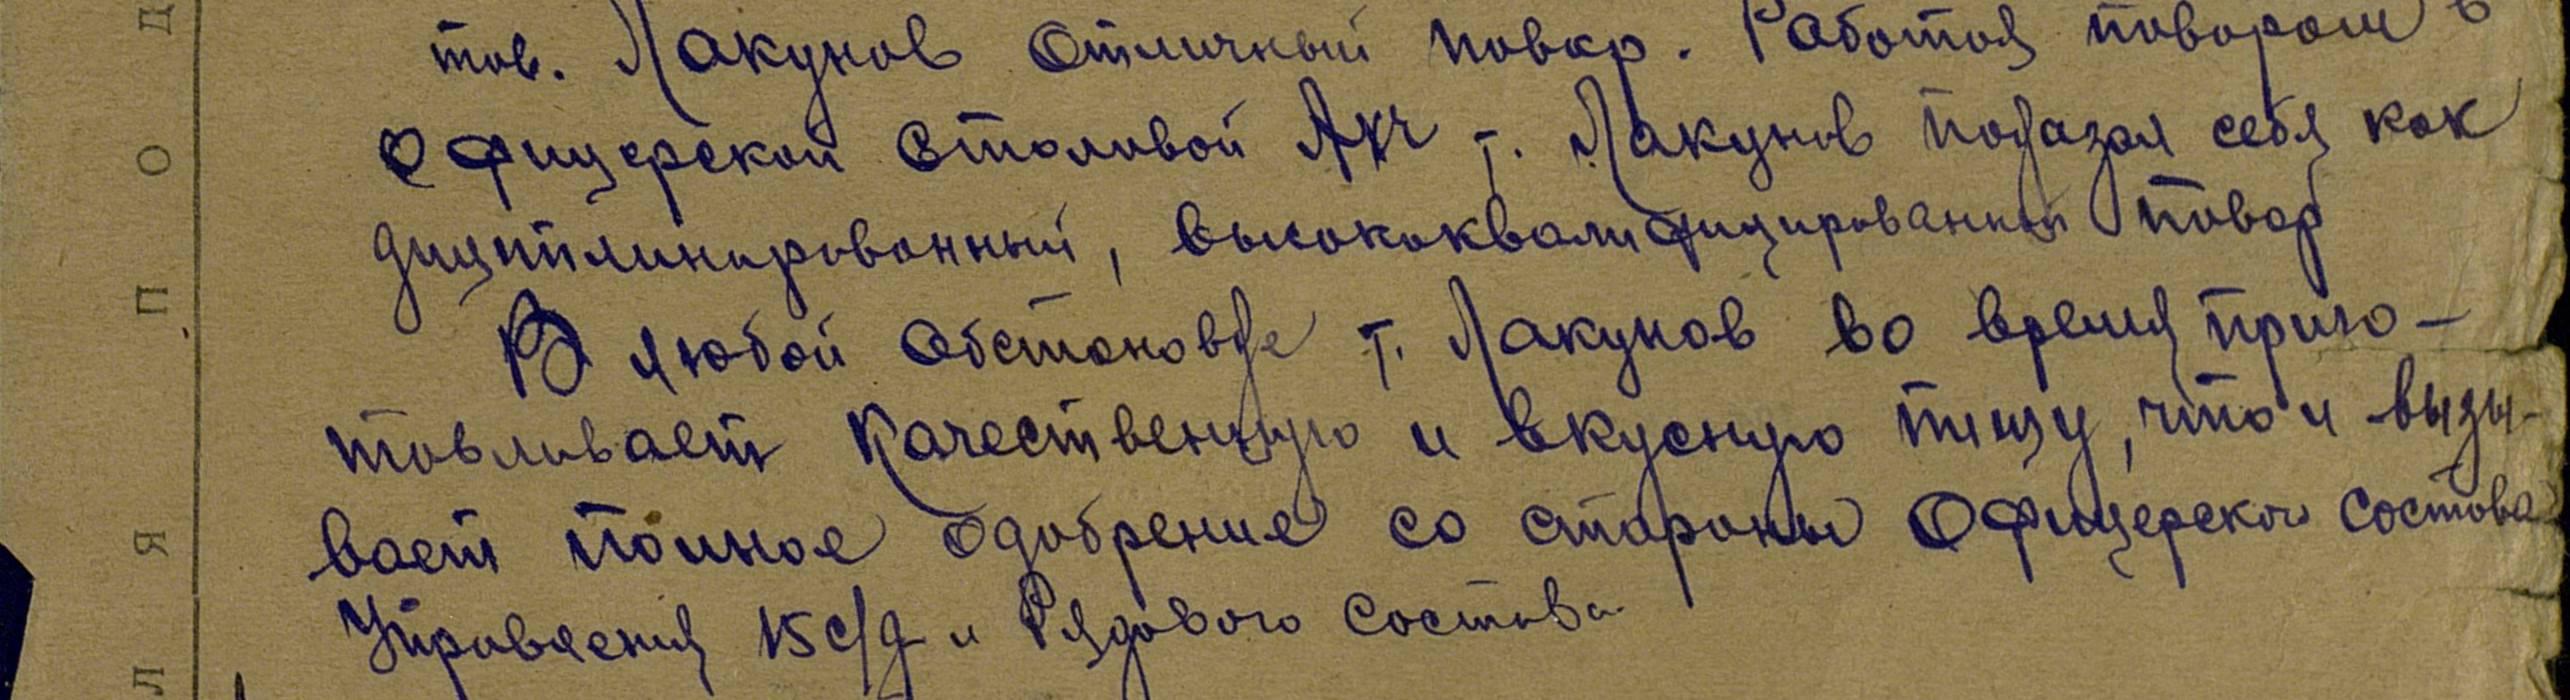 тов. Лакунов отличный повар. Работая поваром в
офицерской столовой АХЧ т. Лакунов показал себя как
дисциплинированный, высококвалифицированный повар
В любой обстановке т. Лакунов во время приго-
товливает качественную и вкусную пищу, что и вызы-
вает полное одобрение со стороны офицерского состава
Управления 15 с/д и Рядового состава
П О Д
Л Я